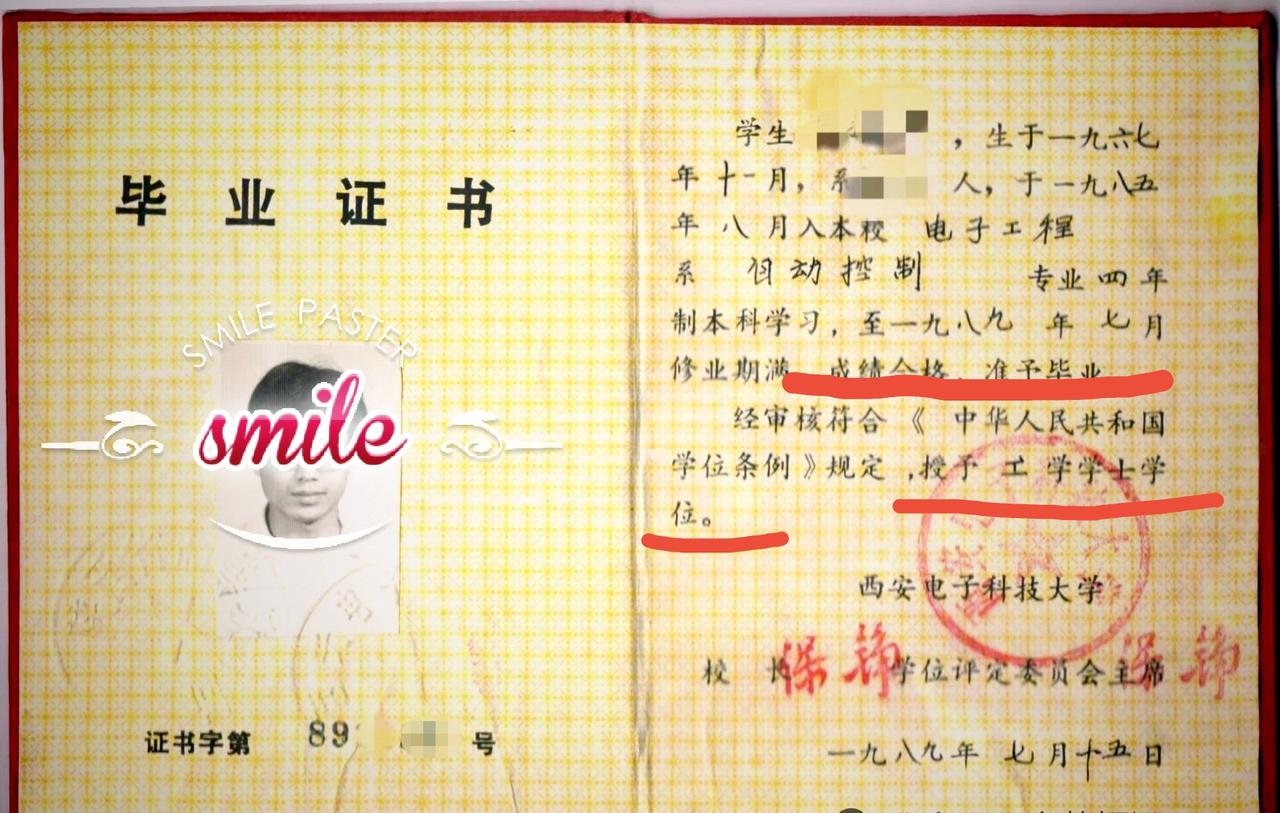 毕业证书
SMILE PASTER
smile
证书字第 89 号
学生 ，生于一九六七
年十一月，系 人，于一九八五
年八月入本校 电子工程
系 自动控制 专业四年
制本科学习，至一九八九年七月
修业期满，成绩合格，准予毕业
经审核符合《中华人民共和国
学位条例》规定，授予工学学士学
位。
西安电子科技大学
校长 保铮 学位评定委员会主席 保铮
一九八九年七月十五日